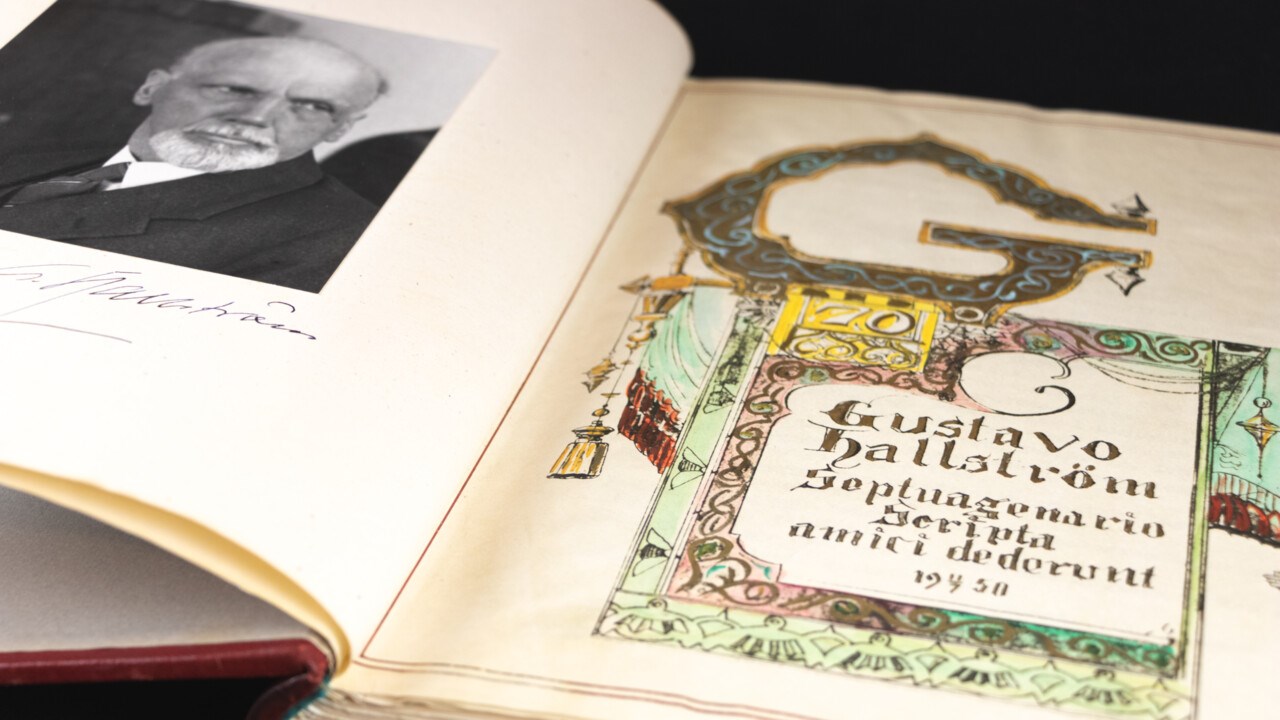 G. Hallström
G
70
Gustavo
hallström
Septuagenario
Scripta
amici dederunt
19 4/5 50